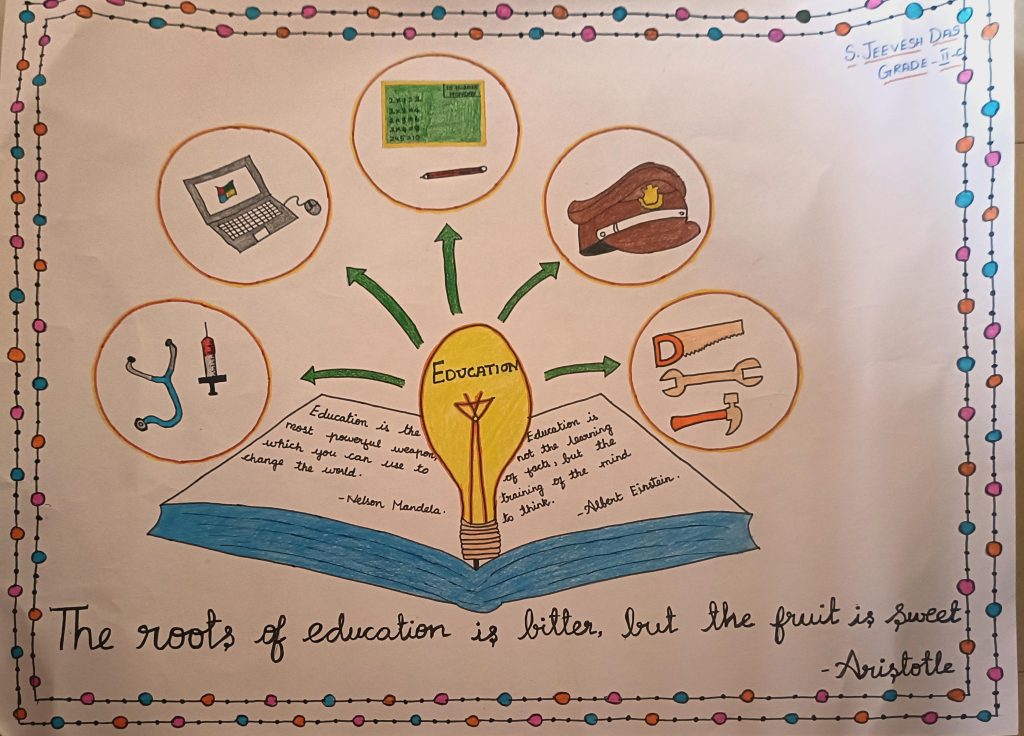 S. JEEVESH DAS
GRADE - II - C
2x1=2
2x2=4
2x3=6
2x4=8
2x5=10
EDUCATION
Education is the
most powerful weapon,
which you can use to
change the world.
- Nelson Mandela.
Education is
not the learning
of facts, but the
training of the mind
to think.
- Albert Einstein.
The roots of education is bitter, but the fruit is sweet
- Aristotle